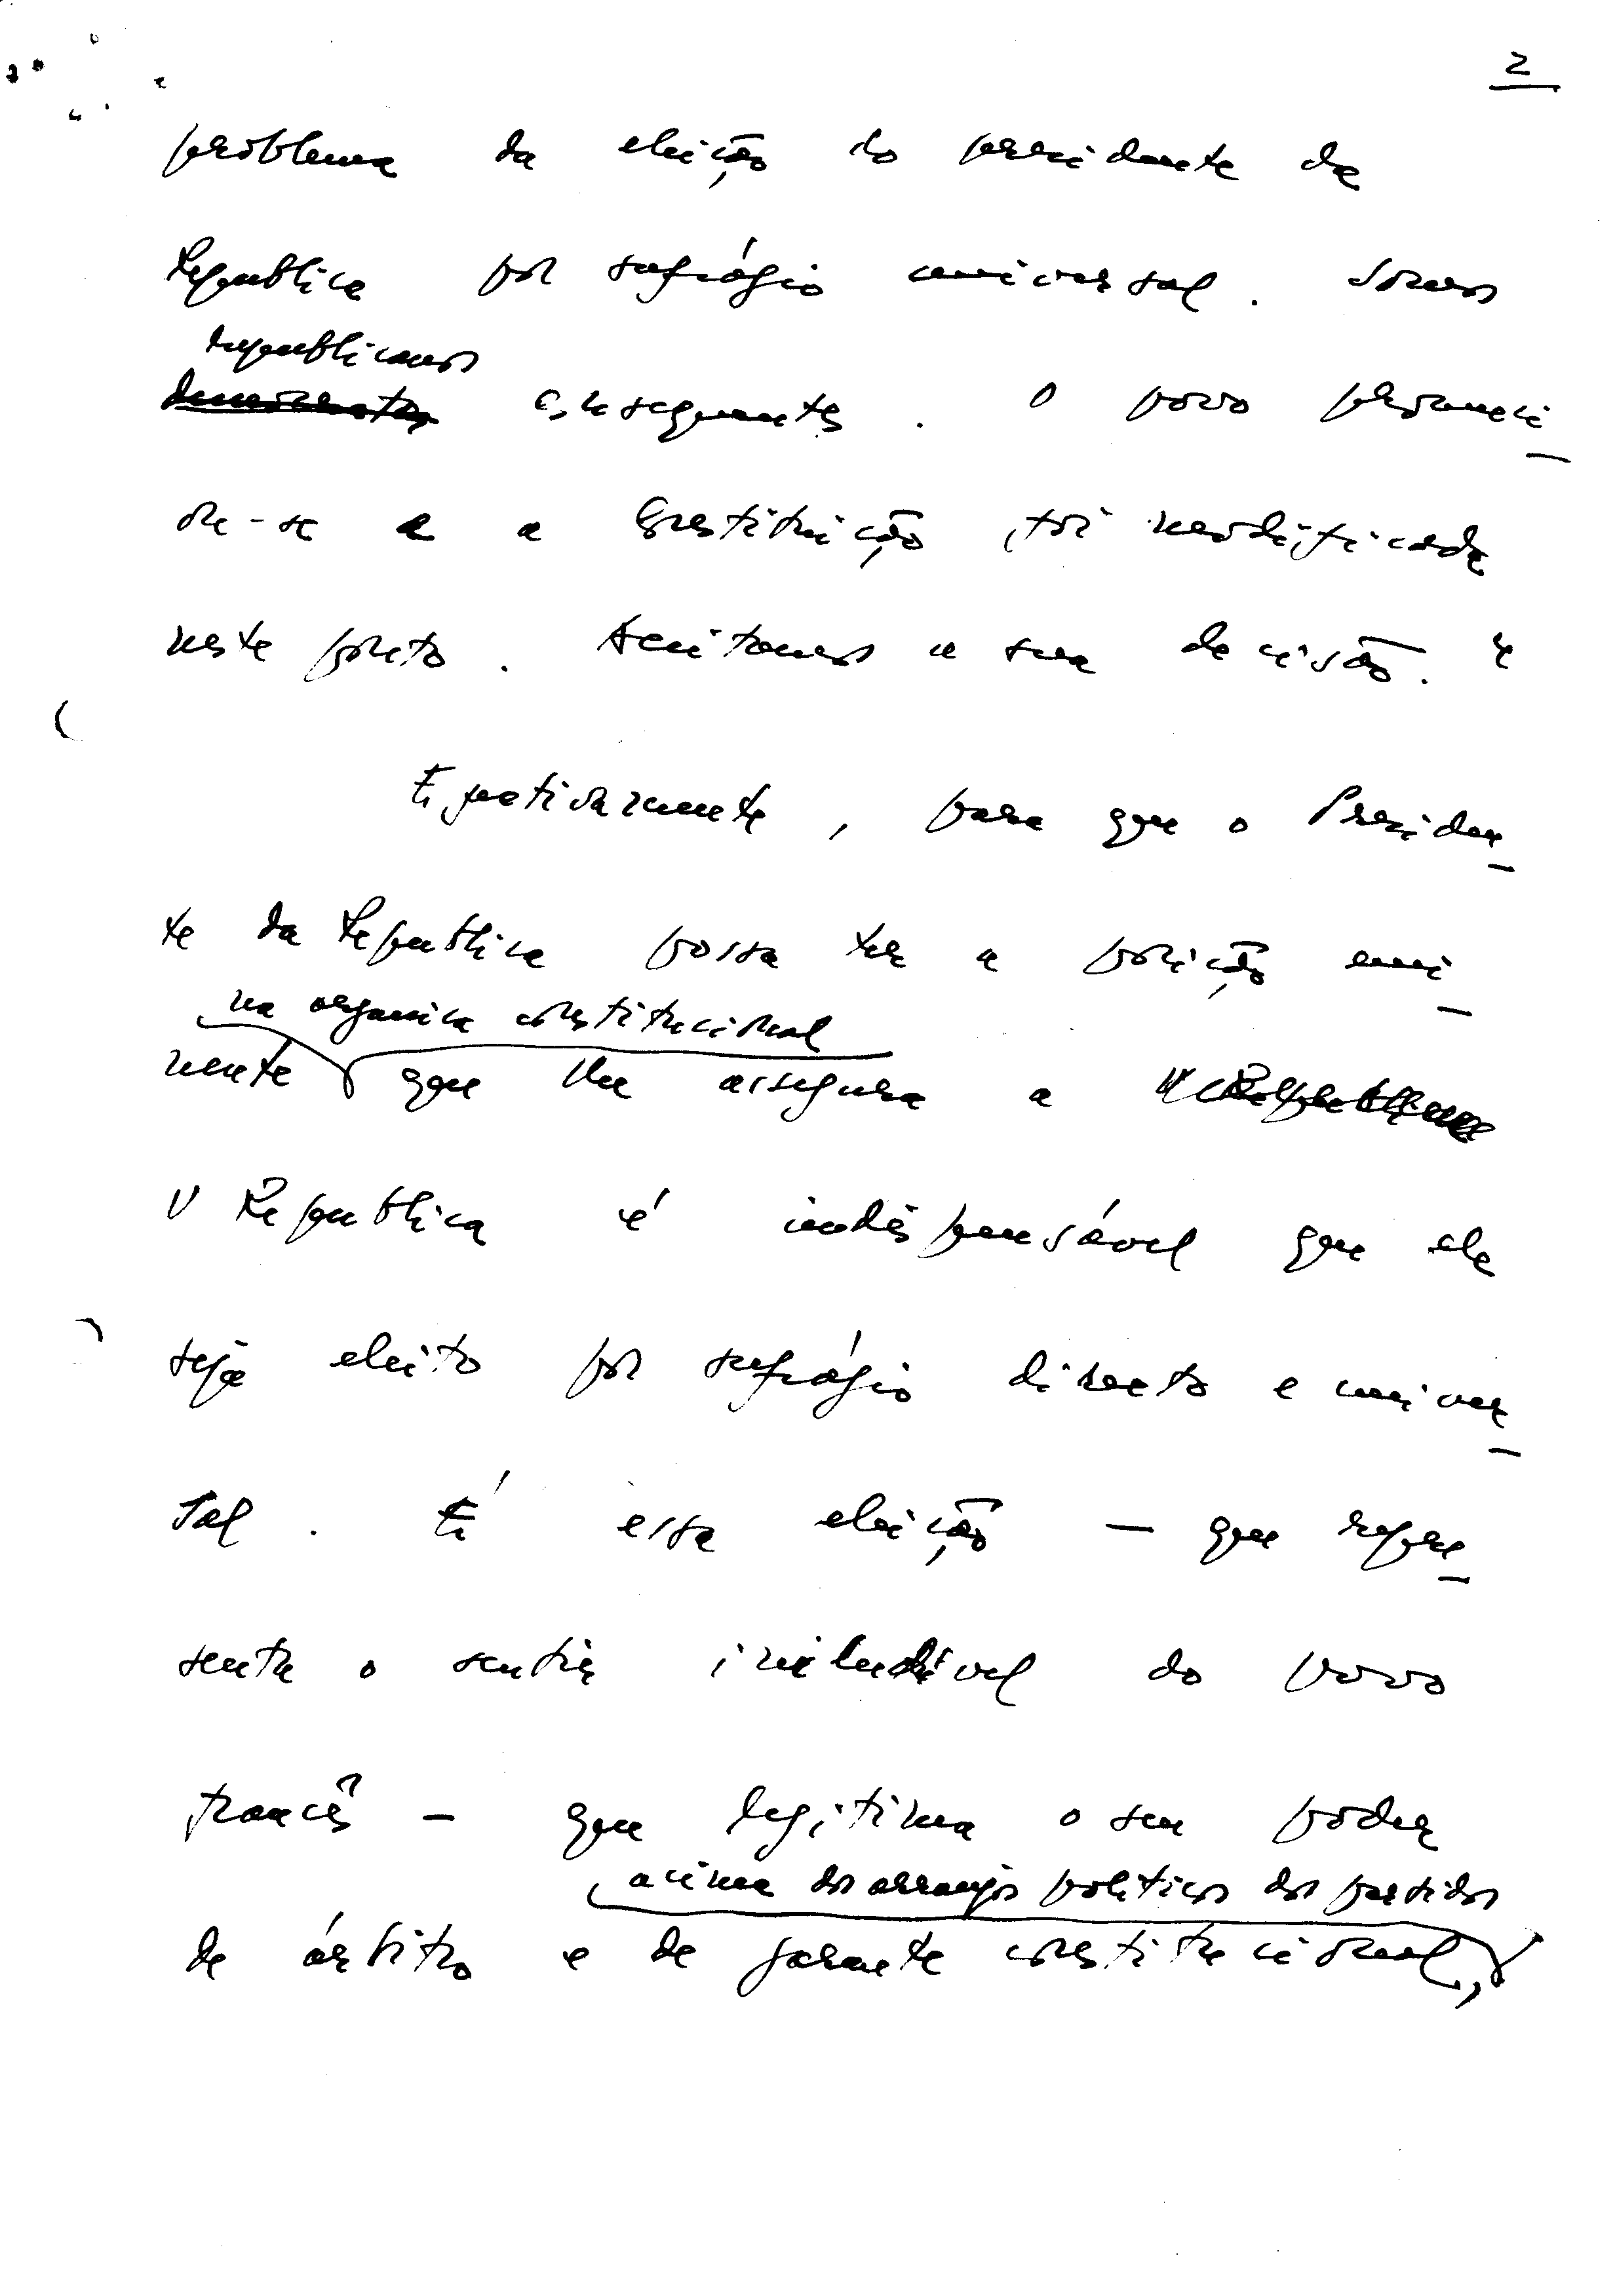 2
problema da eleição do presidente da
Republica por sufrágio universal. Somos
republicanos
democratas consequentes. O povo pronunci-
ou-se e a Constituição foi modificada
neste ponto. Aceitamos a sua decisão."
Efectivamente, para que o Presiden-
te da Republica possa ter a posição emi-
na organica constitucional
nente que lhe assegura a V Republica
V Republica é indispensável que ele
seja eleito por sufrágio directo e univer-
sal. É essa eleição — que repre-
senta o sentir iniludível do povo
francês — que legitima o seu poder
acima dos arranjos politicos dos partidos
de árbitro e de garante constitucional,